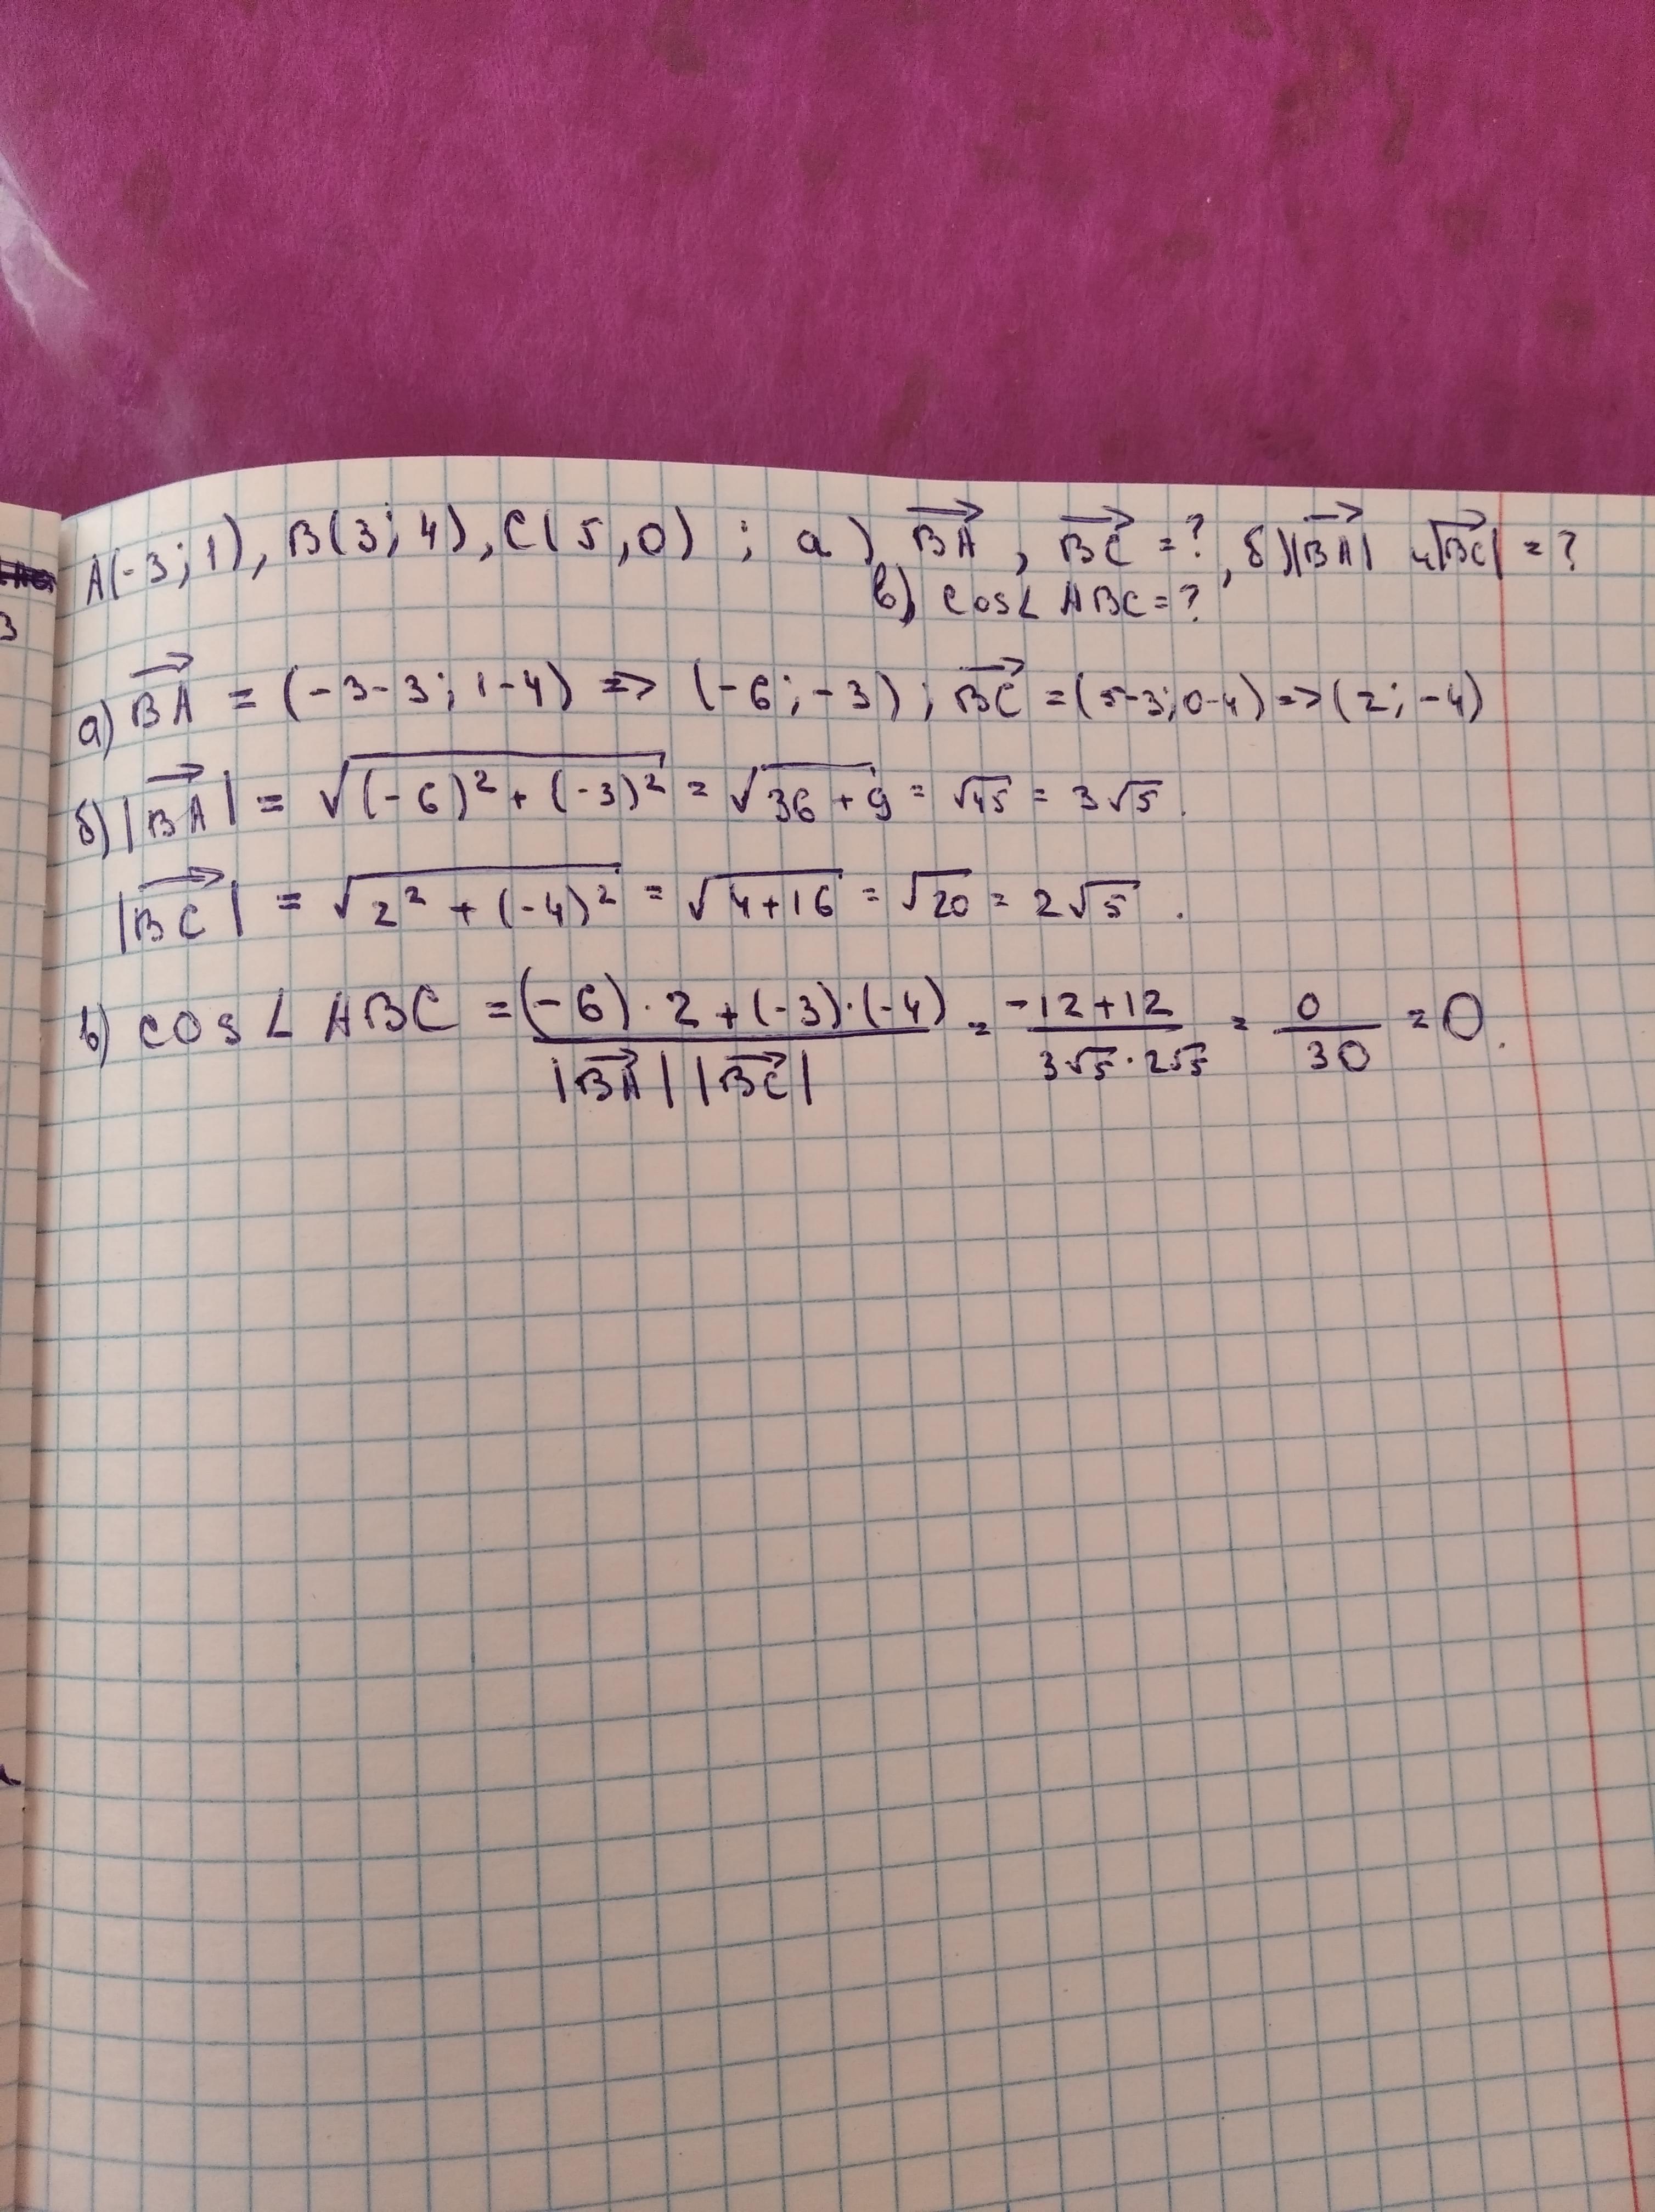 A(-3;1), B(3;4), C(5,0) ; а) BA→, BC→ = ?, б) |BA→| и |BC→| = ?
в) cos∠ABC = ?
а) BA→ = (-3-3; 1-4) => (-6; -3) ; BC→ = (5-3; 0-4) => (2; -4)
б) |BA→| = √((-6)² + (-3)²) = √(36+9) = √45 = 3√5.
|BC→| = √(2² + (-4)²) = √(4+16) = √20 = 2√5.
в) cos∠ABC = ((-6)·2 + (-3)·(-4))/(|BA→||BC→|) = (-12+12)/(3√5·2√5) = 0/30 = 0.
3